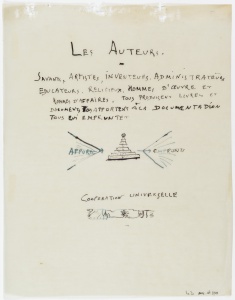 LES AUTEURS.
SAVANS, ARTISTES, INVENTEURS, ADMINISTRATEURS,
EDUCATEURS, RELIGIEUX, HOMMES D'ŒUVRE ET
HOMMES D'AFFAIRES, TOUS PRODUISENT LIVRES ET
DOCUMENTS, TOUS APPORTENT À LA DOCUMENTATION
TOUS LUI EMPRUNTENT
APPORTS
EMPRUNTS
COOPERATION UNIVERSELLE